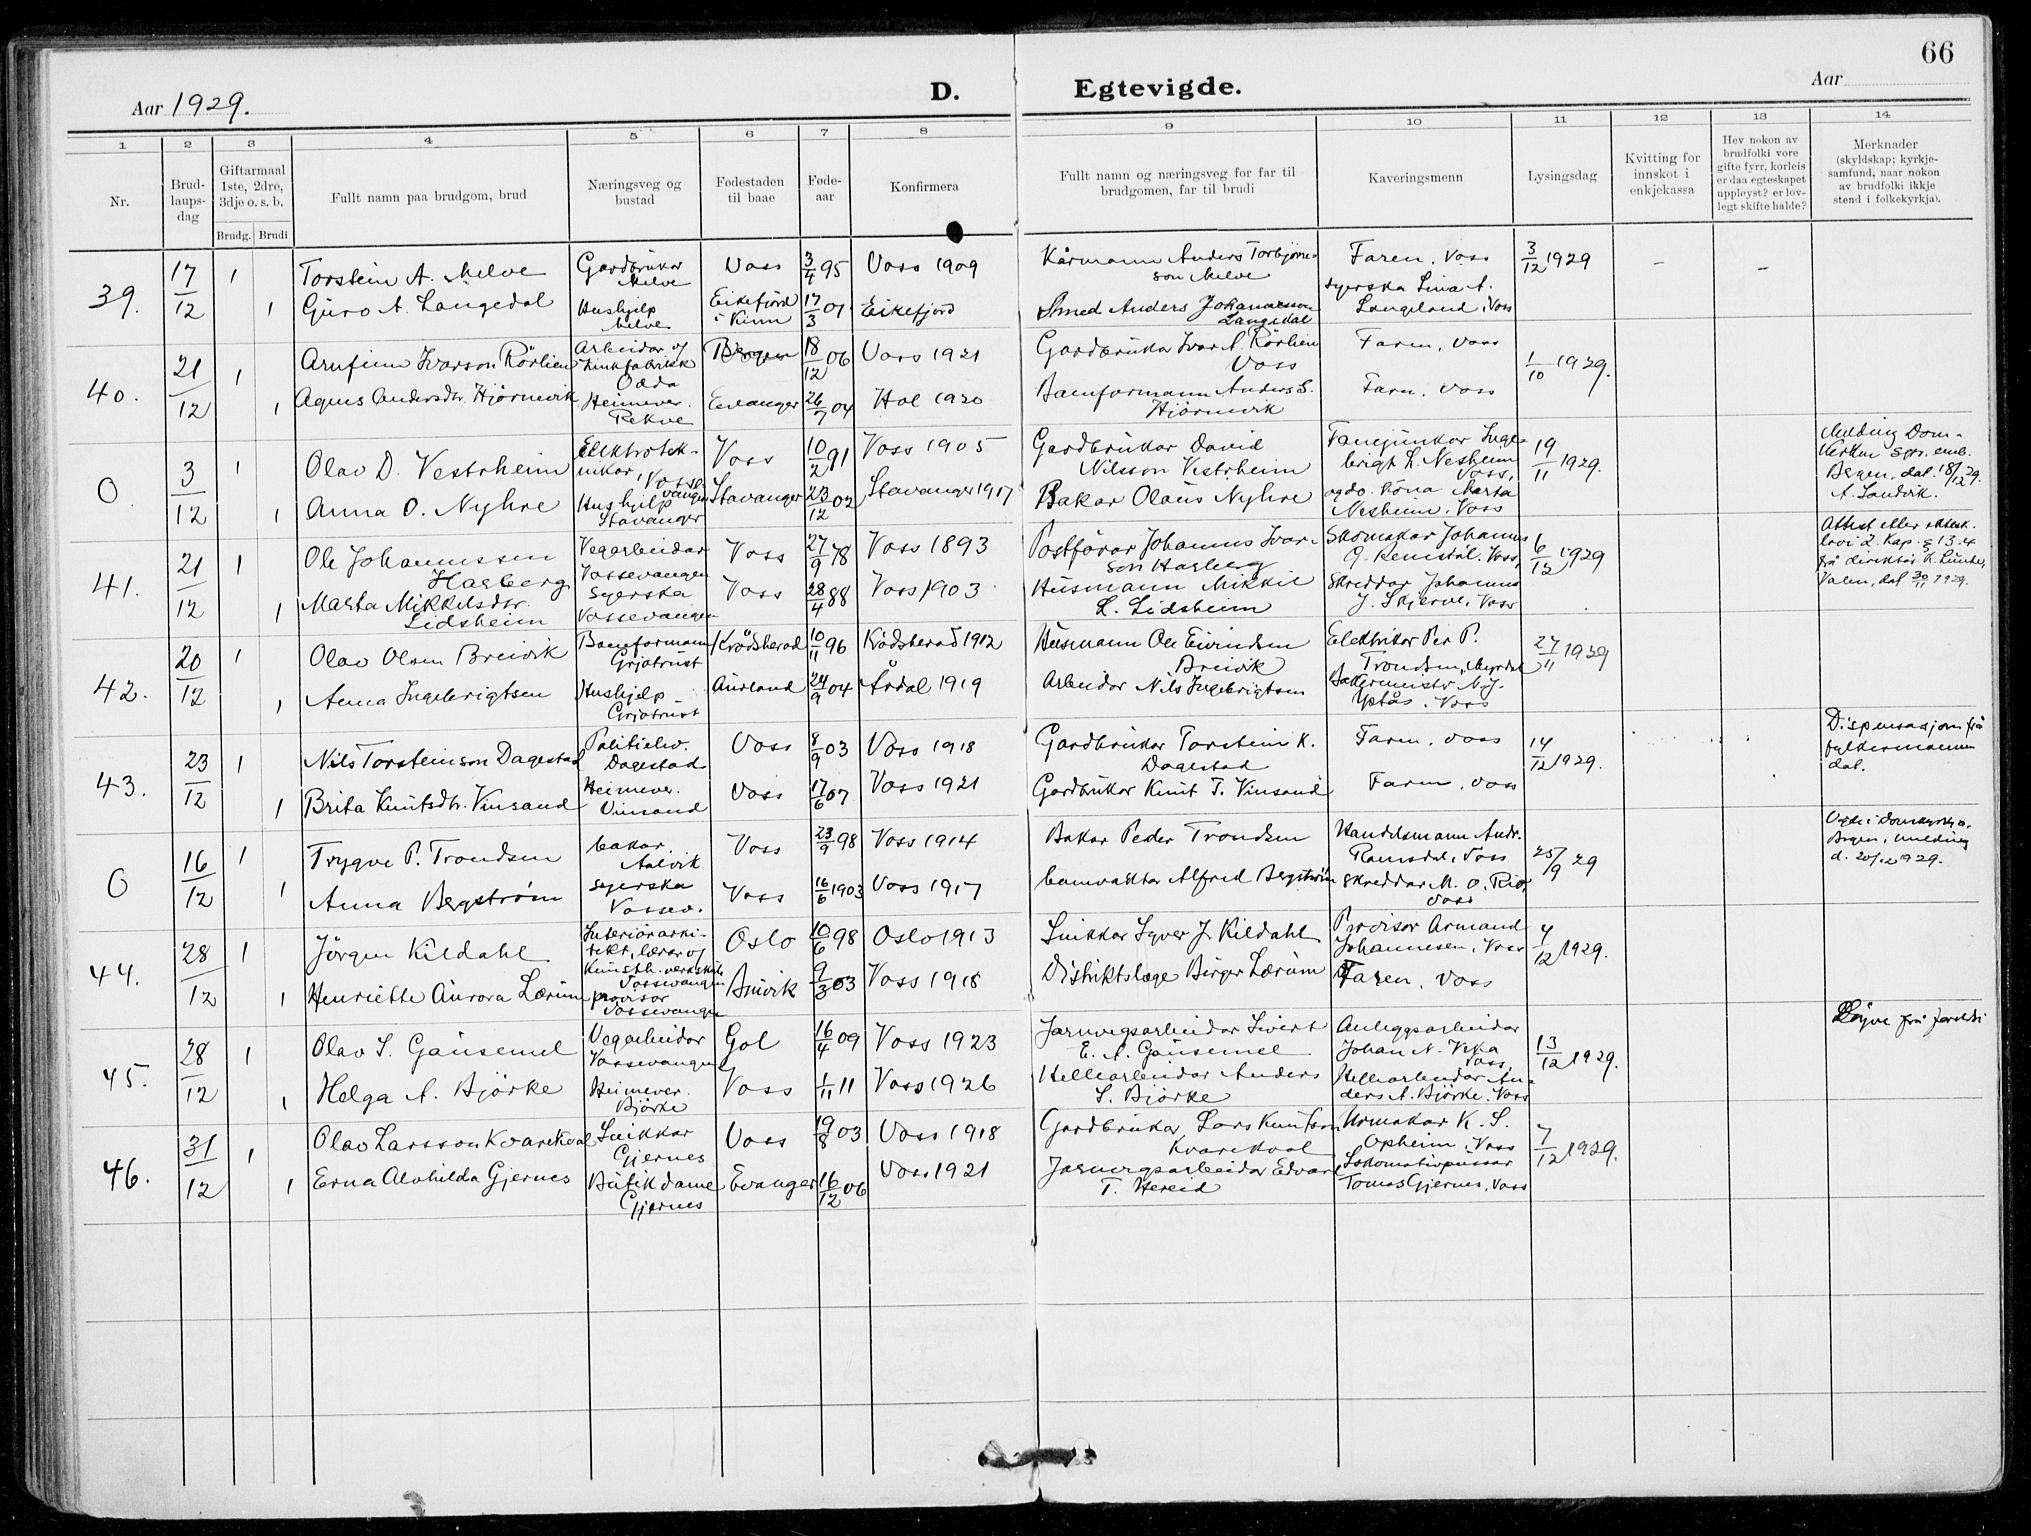 66
Aar 1929.
D. Egtevigde.
Aar
1 2 3 4 5 6 7 8 9 10 11 12 13 14
Nr.
Brud-
laups-
dag
Giftarmaal
1ste, 2dre,
3dje o. s. b.
Brudg. Brudi
Fullt namn paa brudgom, brud
Næringsveg og
bustad
Fødestaden
til baae
Føde-
aar
Konfirmera
Fullt namn og næringsveg for far til
brudgomen, far til brudi
Kaveringsmenn
Lysingsdag
Kvitting for
innskot i
enkjekassa
Hev nokon av
brudfolki vore
gifte fyrr, korleis
er daa egteskapet
uppløyst? er lov-
legt skifte halde?
Merknader
(skyldskap; kyrkje-
samfund, naar nokon
av brudfolki ikkje
stend i folkekyrkja).
39. 17/12
1 Torstein A. Melve
Gardbrukar
Melve
Voss 3/4 95 Voss 1909
Kårmann Anders Torbjørns-
son Melve
Faren, Voss
3/12 1929 – –
1 Guro A. Langedal
Hushjelp
Melve
Eikefjord
i Kinn
17/3 07 Eikefjord
Smed Anders Johannesson
Langedal
Syerska Lina A.
Langeland, Voss
40. 21/12
1 Arnfinn Ivarson Rörlien
Arbeidar v/
Zinkfabrikk
Odda
Bergen 18/12 06 Voss 1921
Gardbrukar Ivar A. Rörlien
Voss
Faren, Voss
1/10 1929.
1 Agnes Andersdtr. Hjørnevik
Heimever.
Rekve
Evanger 26/7 04 Hol 1920
Banformann Anders S.
Hjörnevik
Faren, Voss
0 3/12
1 Olav D. Vestrheim
Elektrotek-
nikar, Vosse-
vangen
Voss 10/2 91 Voss 1905
Gardbrukar David
Nilsson Vestrheim
Fanejunkar Inge-
brigt L. Nesheim
Voss,
19/11 1929.
Melding Dom-
kirken spr. emb.
Bergen, dat. 18/12 29.
A. Sandvik.
1 Anna O. Nyhre
Hushjelp
Stavanger
Stavanger 23/12 02 Stavanger 1917
Bakar Olaus Nyhre
og do. kona Marta
Nesheim, Voss
41. 21/12
1 Ole Johannessen
Hasberg
Vegarbeidar
Vossevangen
Voss 27/9 78 Voss 1893
Postförar Johannes Ivar-
son Hasberg
Skomakar Johannes
O. Remstal, Voss,
6/12 1929
Attest etter ektesk.
lovi 2. Kap. § 13.4
frå direktör K. Lunde,
Valen, dat 30/11 1929.
1 Marta Mikkelsdtr.
Lidsheim
Syerska
Vossevangen
Voss 28/4 88 Voss 1903
Husmann Mikkil
L. Lidsheim
Skreddar Johannes
J. Skjerve, Voss
42. 20/12
1 Olav Olsen Breivik
Baneformann
Grjotrust
Krödsherad 10/11 96 Krödsherad 1912
Husmann Ole Eivindsen
Breivik
Elektrikar Per P.
Trondsen, Myrdal
27/11 1929
1 Anna Ingebrigtsen
Hushjelp
Grjotrust
Aurland 24/9 04 Årdal 1919
Arbeidar Nils Ingebrigtsen
Bakermeister N. J.
Optås, Voss
43. 23/12
1 Nils Torsteinson Dagestad
Politielev.
Dagestad
Voss 8/9 03 Voss 1918
Gardbrukar Torstein K.
Dagestad
Faren, Voss
14/12 1929.
Dispensasjon frå
fylkesmannen
dat.
1 Brita Knutsdtr. Vinsand
Heimever.
Vinsand
Voss 17/6 07 Voss 1921
Gardbrukar Knut T. Vinsand
Faren, Voss
0 16/12
1 Trygve P. Trondsen
bakar,
Aalvik
Voss 23/9 98 Voss 1914
Bakar Peder Trondsen
Handelsmann Andr.
Ramsdal, Voss
25/9 29
Vigde i Domkyrkja.
Bergen, melding
d. 20/12 1929.
1 Anna Bergström
syerska
Vossev.
Voss 16/6 1903 Voss 1917
banevaktar Alfred Bergström
skreddar M. O. Rio,
Voss
44. 28/12
1 Jörgen Kildahl
Interiörarki-
tekt, lærar v/
Kunsth. verkskule
Vossevangen
Oslo 10/6 98 Oslo 1913
Snikkar Syver J. Kildahl
Provisor Armand
Johannesen, Voss
4/12 1929.
1 Henriette Aurora Lærum
provisor
Vossevangen
9/3 03 Voss 1918
Distriktslæge Birger Lærum
Faren, Voss
45. 28/12
1 Olav S. Gausemel
Vegarbeidar
Vossevangen
Gol 16/4 09 Voss 1923
Jarnvegsarbeidar Sivert
E. A. Gausemel
Anleggsarbeidar
Johan N. Veka
Voss,
13/12 1929.
Löyve frå foreldri
1 Helga A. Björke
Heimever.
Björke
Voss 1/11 11 Voss 1926
Hellearbeidar Anders
S. Björke
Hellearbeidar An-
ders A. Björke, Voss
46. 31/12
1 Olav Larsson Kvarekval
Snikkar
Gjernes
Voss 19/8 03 Voss 1918
Gardbrukar Lars Knutson
Kvarekval
Urmakar K. S.
Opheim, Voss
7/12 1929.
1 Erna Alvhilda Gjernes
Butikdame
Gjernes
Evanger 16/12 06 Voss 1921
Jarnvegsarbeidar Edvard
T. Hereid
Lokomotivpussar
Tomas Gjernes, Voss